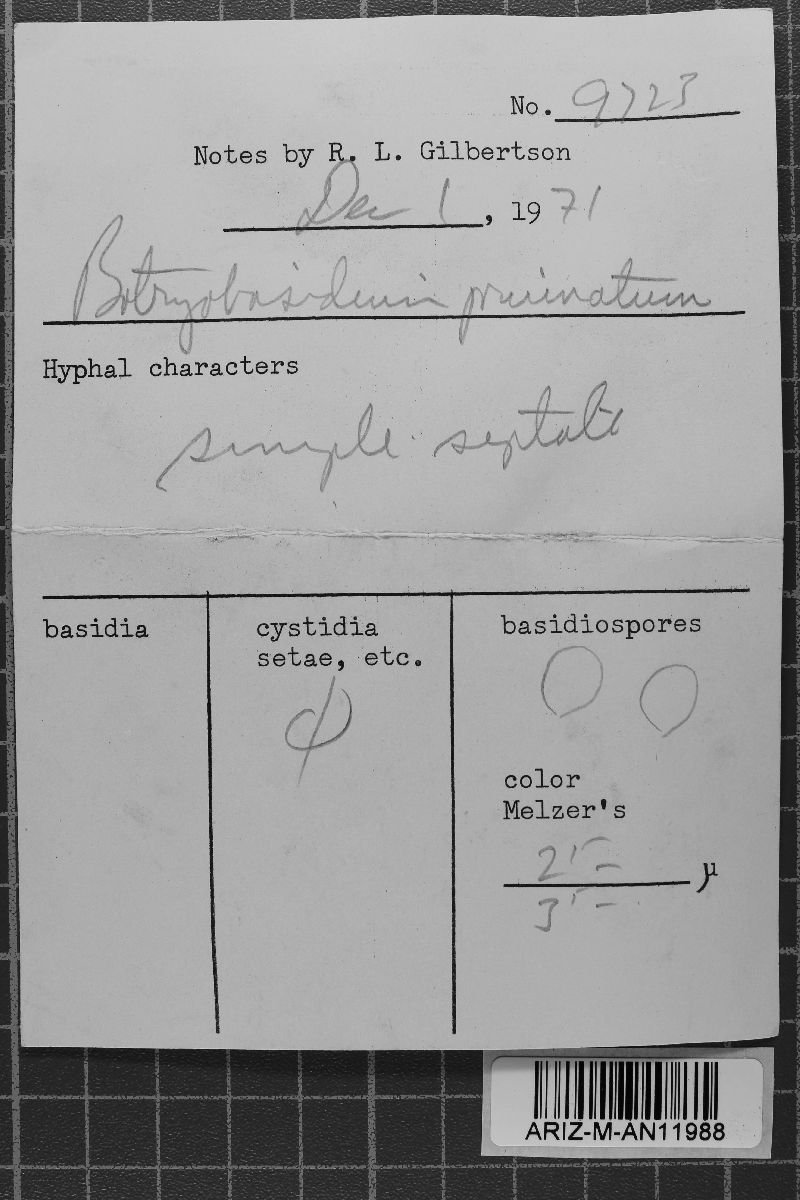 No. 9723
Notes by R. L. Gilbertson
Dec 1, 1971
Botryobasidium pruinatum
Hyphal characters
simple septate
basidia
cystidia
setae, etc.
φ
basidiospores
color
Melzer's
µ
ARIZ-M-AN11988